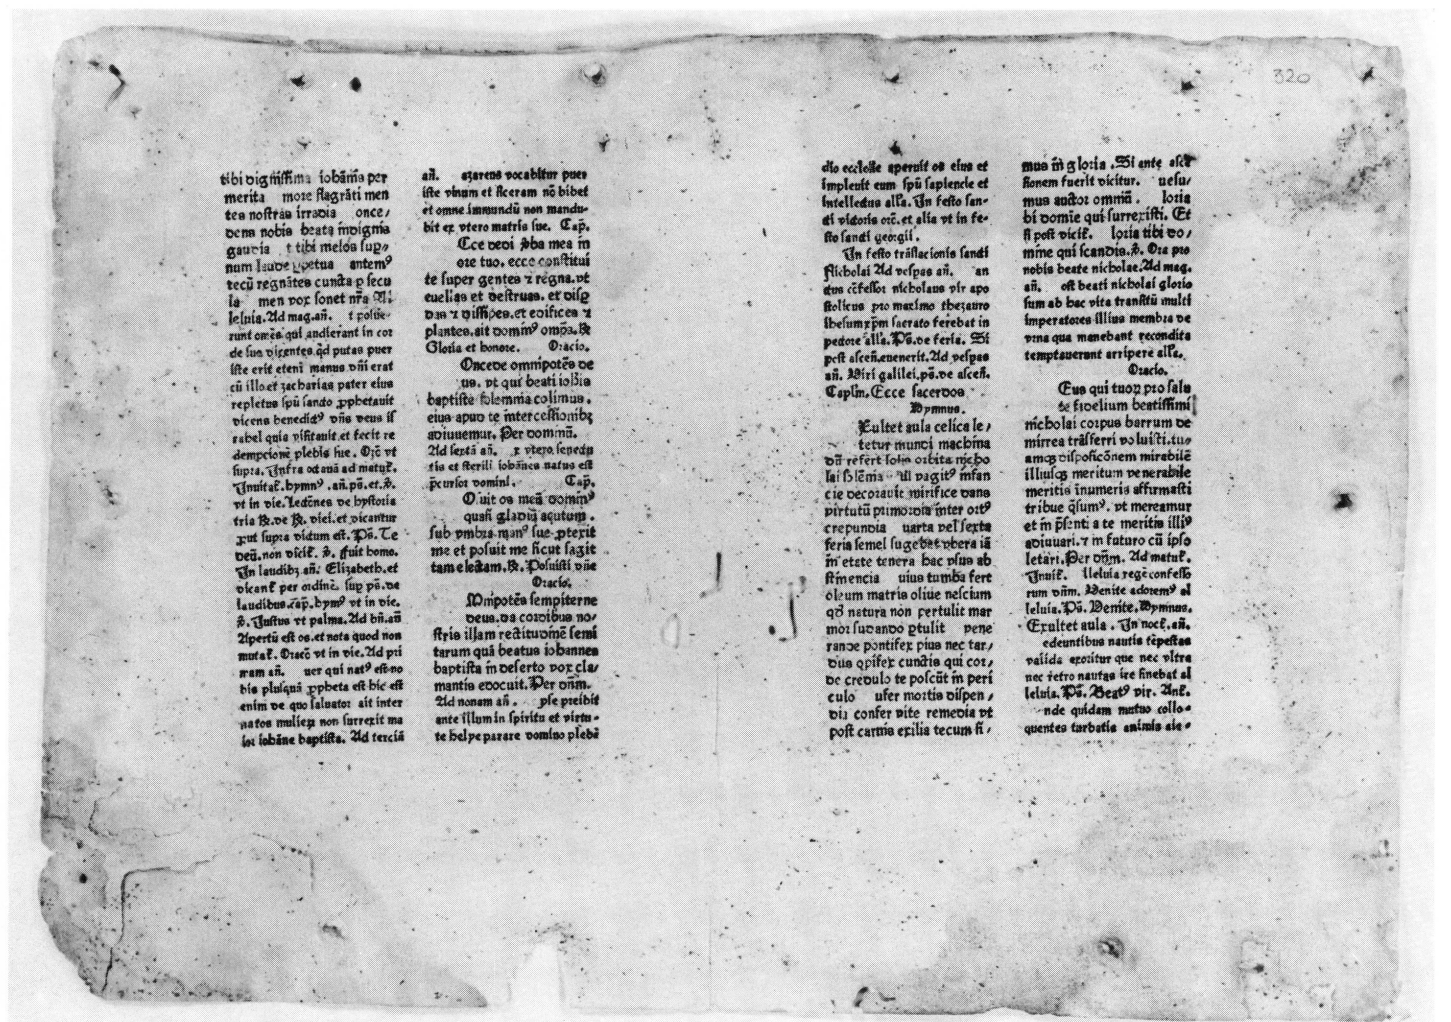 320
tibi dignissima iobāms per
merita more flagrāti men
tes nostras irradia once/
dens nobis beata indignis
gaudia t tibi melos supꝰ
num laude petua antemꝰ
tecū regnātes cuncta ꝑ secu
la men vox sonet nr̄a Al
leluia. Ad mag. añ. t posue-
runt om̄es qui audierant in cor
de suo dicentes. qd putas puer
iste erit eteni manus dñi erat
cū illo. et zacharias pater eius
repletus spū sancto ꝓphetauit
dicens benedictꝰ dñs deus is
rahel quia visitauit et fecit re
dempcionē plebis sue. Orō vt
supra. Infra octauā ad matuꝭ.
Inuitaꝭ. hymnꝰ. añ. pš. et. v̄.
vt in die. Lectōnes de hystoria
tria ℟. de ℟. diei. et dicantur
ꝓut supra dictum est. Pš. Te
deū. non diciꝭ. v̄. Fuit homo.
In laudibꝫ añ. Elizabeth. et
dicanꝭ per ordinē. sup pš. de
laudibus. cap̄. hymꝰ vt in die.
v̄. Justus vt palma. Ad bñ. añ
Apertū est os. et nota quod non
mutaꝭ. Oracō vt in die. Ad pri
mam añ. uer qui natꝰ est no
bis plusquā ꝓpheta est hic est
enim de quo saluator ait inter
natos mulieꝝ non surrexit ma
ior iohāne baptista. Ad terciā
añ. azareus vocabitur puer
iste vinum et siceram nō bibet
et omne immundū non mandu-
bit ex vtero matris sue. Cap̄.
Cce dedi v̄ba mea in
ore tuo. ecce constitui
te super gentes ⁊ regna. vt
euellas et destruas. et disꝑ
das ⁊ dissipes. et edifices ⁊
plantes. ait dominꝰ omp̄s. ℟
Gloria et honore. Oracio.
Oncede omnipotēs de
us. vt qui beati iohīs
baptiste solemnia colimus.
eius apud te intercessionibꝫ
adiuuemur. Per dominū.
Ad sextā añ. x vtero senectu
tis et sterili iobānes natus est
p̄cursor domini. Cap.
O uit os meū dominꝰ
quasi gladiū acutum.
sub vmbra manꝰ sue ꝓtexit
me et posuit me sicut sagit
tam electam. ℟. Posuisti dñe
Oracio.
Mnipotēs sempiterne
deus. da cordibus no/
stris illam rectitudinē semi
tarum quā beatus iohannes
baptista in deserto vox cla/
mantis edocuit. Per dñm.
Ad nonam añ. pse preibit
ante illum in spiritu et virtu-
te helye parare domino plebē
dio ecclesie aperuit os eius et
impleuit eum spū sapiencie et
intellectus alla. In festo san-
cti victoris orō. et alia vt in fe-
sto sancti georgii.
In festo trāslacionis sancti
Nicholai Ad vesꝑas añ. an
ctus cōfessor nicholaus vir apo
stolicus pro maximo thezauro
ihesum xp̄m sacrato ferebat in
pectore alla. Pš. de feria. Si
post ascen̄. euenerit. Ad vesꝑas
añ. Viri galilei. pš. de ascen̄.
Caplm̄. Ecce sacerdos
Hymnus.
Exultet aula celica le/
tetur mundi machina
dū refert solis orbita nicho
lai solēnia ui vagitꝰ infan
cie decorauit mirifice dans
virtutū primordia inter ortꝰ
crepundia uarta vel sexta
feria semel sugebat vbera iā
in etate tenera hac ꝓsus ab
stinencia uius tumba fert
oleum matris oliue nescium
qd natura non pertulit mar
mor sudando ꝓtulit vene
rande pontifex pius nec tar/
dus opifex cunctis qui cor/
de credulo te poscūt in peri
culo ufer mortis dispen/
dia confer vite remedia vt
post carnis exilia tecum si/
mus in̄ gloria. Si ante ascē
sionem fuerit dicitur. uesu/
mus auctor omniū. loria
bi domie qui surrexisti. Et
si post diciꝭ. loria tibi do/
mine qui scandis. v̄. Ora pro
nobis beate nicholae. Ad mag.
añ. ost beati nicholai glorio
sum ab hac vita transitū multi
imperatores illius membra de
vina que manebant recondita
temptauerunt arripere alla.
Oracio.
Eus qui tuoꝝ pro salu
te fidelium beatissimi
nicholai corpus barrum de
mirrea trāsferri voluisti. tu/
amqꝫ disposicōnem mirabilē
illiusqꝫ meritum venerabile
meritis inumeris affirmasti
tribue q̄sumꝰ. vt mereamur
et in p̄senti a te meritis illiꝰ
adiuuari. ⁊ in futuro cū ipso
letari. Per dñm. Ad matuꝭ.
Inuiꝭ. lleluia regē confesso
rum dñm. Venite adoremꝰ al
leluia. Pš. Venite. Hymnus.
Exultet aula. In noct̄. añ.
edeuntibus nautis tēpestas
valida exoritur que nec vltra
nec retro nautas ire sinebat al
leluia. Pš. Beatꝰ vir. Anꝭ.
nde quidam mutuo collo-
quentes turbatis animis aie-